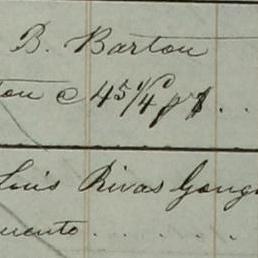 B. Barton
ton @ 45 1/4 p% . .
Louis Rivas Gong
uento . . . . .